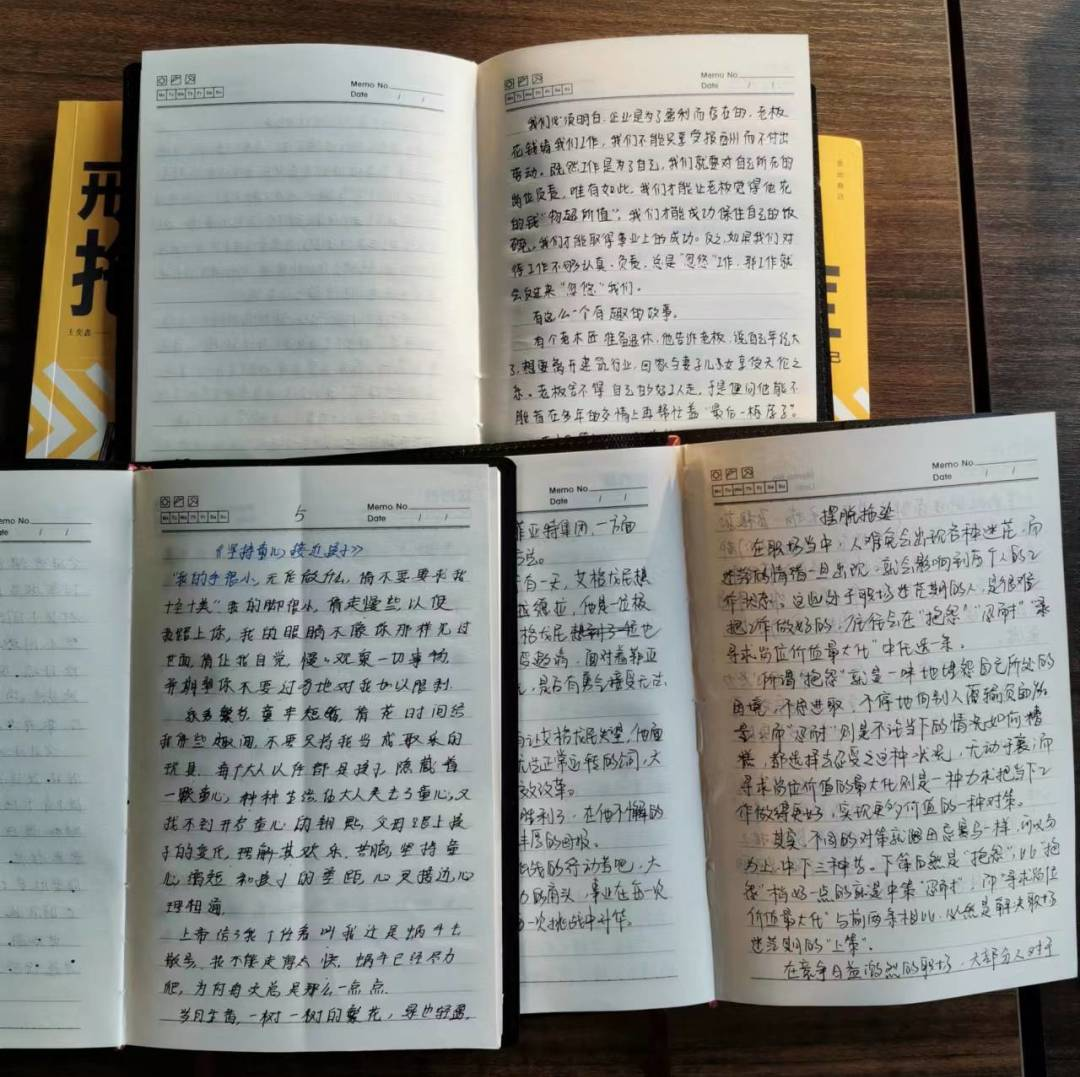 Memo No
Date / /
Mo Tu We Th Fr Sa Su
Memo No
Date / /
Mo Tu We Th Fr Sa Su
我们必须明白,企业是为了盈利而存在的,老板
花钱请我们工作,我们不能只享受报酬而不付出
劳动。既然工作是为了自己,我们就要对自己所在的
岗位负责。唯有如此,我们才能让老板觉得他花
的钱“物超所值”,我们才能成功保住自己的饭
碗,我们才能取得事业上的成功。反之,如果我们对
待工作不够认真、负责,总是“忽悠”工作,那工作就
会反过来“忽悠”我们。
有这么一个有趣的故事。
有个老木匠准备退休,他告诉老板,说自己年纪大
了,想要离开建筑行业,回家与妻子儿女享受天伦之
乐。老板舍不得自己的好工人走,于是便问他能不
能看在多年的交情上再帮忙盖“最后一栋房子”。
戒
抱
王奕鑫
己
Memo No
Date / /
Mo Tu We Th Fr Sa Su
5
Memo No
Date / /
《坚持童心 接近孩子》
“我的手很小,无论做什么,请不要要求我
十全十美”我的脚很小,请走慢些,以便
我跟上你,我的眼睛不像你那样见过
世面,请让我自己慢慢观察一切事物
并期望你不要过多地对我加以限制.
家务繁多,童年短暂,请花时间给
我讲些趣闻,不要只将我当成取乐的
玩具.每个大人以任都是孩子,隐藏着
一颗童心,种种生活让大人失去了童心,又
找不到开启童心的钥匙,父母跟上孩
子的变化,理解其欢乐、苦恼,坚持童
心缩短和孩子的差距,心灵接近,心
理相通.
上帝给了我个任务叫我这是蜗牛去
散步,我不能走得太快,蜗牛已经尽力
爬,为何每天总是那么一点点.
岁月生香,一树一树的繁花,
Memo No
Date / /
菲亚特集团,一方面
有一天,艾格龙尼想
他是一位极
格龙尼想到了他也
面对着菲亚
是否有勇气接受
让艾格龙尼失望,他面
正常运转的公司,大
改革。
胜利了,在他不懈的
丰厚的回报。
的行动者吧,大
的肩头,事业在每一次
一次挑战中升华。
Mo Tu We Th Fr Sa Su
Memo No
Date / /
摆脱抱怨
在职场当中,人难免会出现各种迷茫,而
迷茫的情绪一旦出现,就会影响到每个人的工
作状态。这些处于职场迷茫期的人,是很难
把工作做好的,往往会在“抱怨”“忍耐”“寻
寻求岗位价值最大化”中任选一条。
所谓“抱怨”就是一味地埋怨自己所处的
困境,不思进取,不停地向别人传输负面的能
量;而“忍耐”则是不论当下的情况如何糟
糕,都选择去忍受这种状况,无动于衷;而
寻求岗位价值的最大化则是一种力求把当下工
作做得更好,实现更多价值的一种对策。
其实,不同的对策就跟田忌赛马一样,可以分
为上、中、下三种策。下策自然是“抱怨”,比“抱
怨”稍好一点的就是中策“忍耐”,而“寻求岗位
价值最大化”与前两条相比,必然是解决职场
迷茫期的“上策”。
在竞争日益激烈的职场,大部分人对于